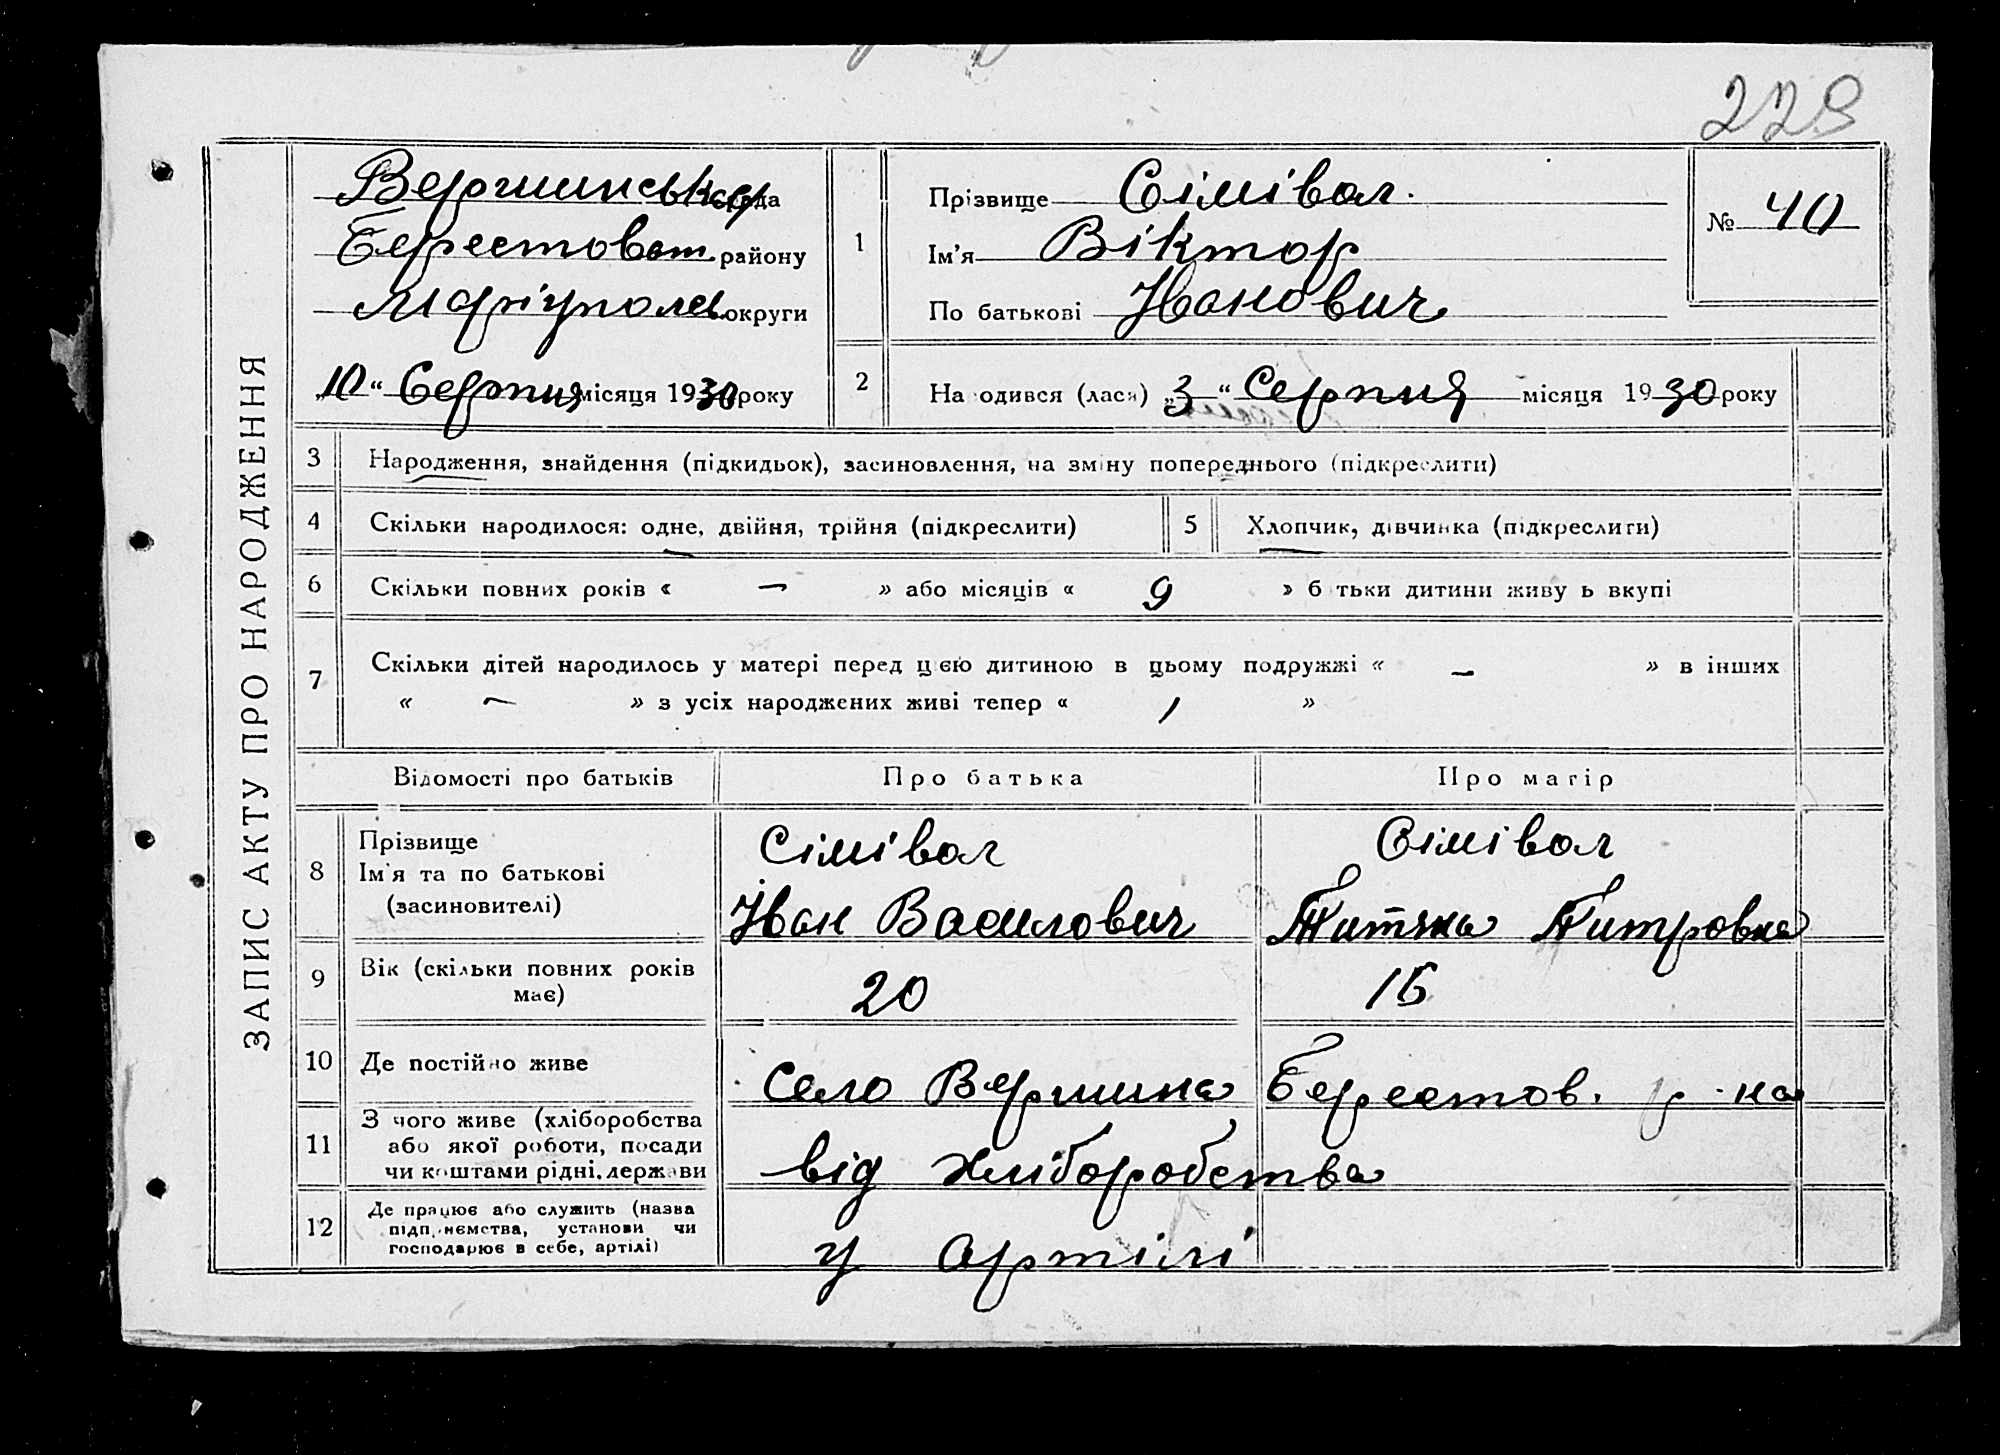 228
ЗАПИС АКТУ ПРО НАРОДЖЕННЯ
Вершинська рада
Берестовот. району
Маріуполь. округи
„10“ Серпня місяця 1930 року
1
Прізвище Сімівол.
Ім'я Віктор
По батькові Іванович
№ 40
2
На одився (лася) „3“ Серпня місяця 1930 року
3 Народження, знайдення (підкидьок), засиновлення, на зміну попереднього (підкреслити)
4 Скільки народилося: одне, двійня, трійня (підкреслити) 5 Хлопчик, дівчинка (підкреслити)
6 Скільки повних років « — » або місяців « 9 » б тьки дитини живу ь вкупі
7 Скільки дітей народилось у матері перед цією дитиною в цьому подружжі « — » в інших
« — » з усіх народжених живі тепер « 1 »
Відомості про батьків Про батька Про матір
8 Прізвище
Ім'я та по батькові
(засиновителі)
Сімівол
Іван Василович
Сімівол
Титяна Питровна
9 Вік (скільки повних років
має)
20
16
10 Де постійно живе
село Вершина Берестов. р-на
11 З чого живе (хліборобства
або якої роботи, посади
чи коштами рідні, держави
від хліборобства
12 Де працює або служить (назва
підприємства, установи чи
господарює в себе, артілі)
у артілі